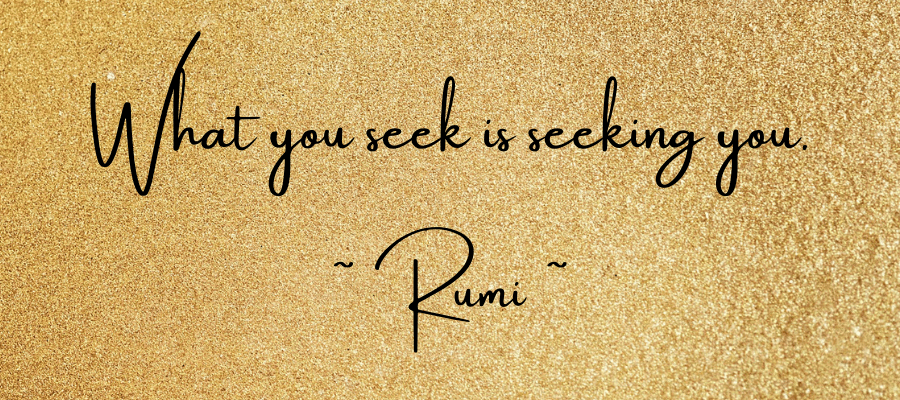 What you seek is seeking you.
~ Rumi ~